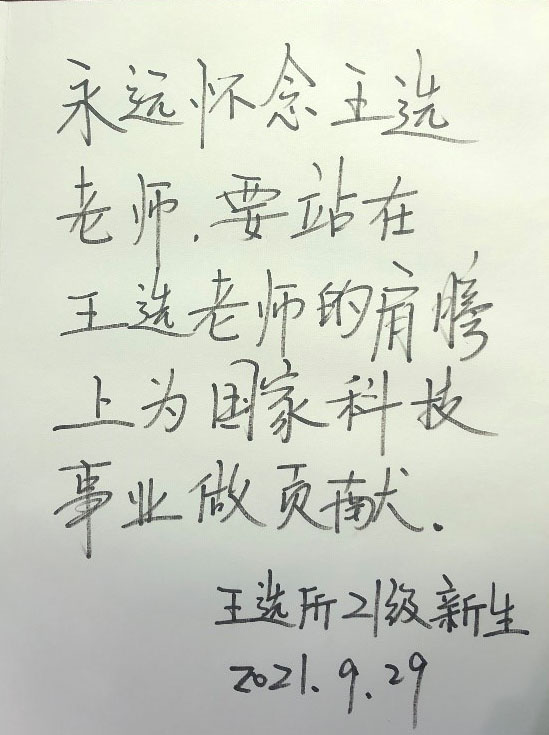 永远怀念王选
老师.要站在
王选老师的肩膀
上为国家科技
事业做贡献.
王选所21级新生
2021.9.29